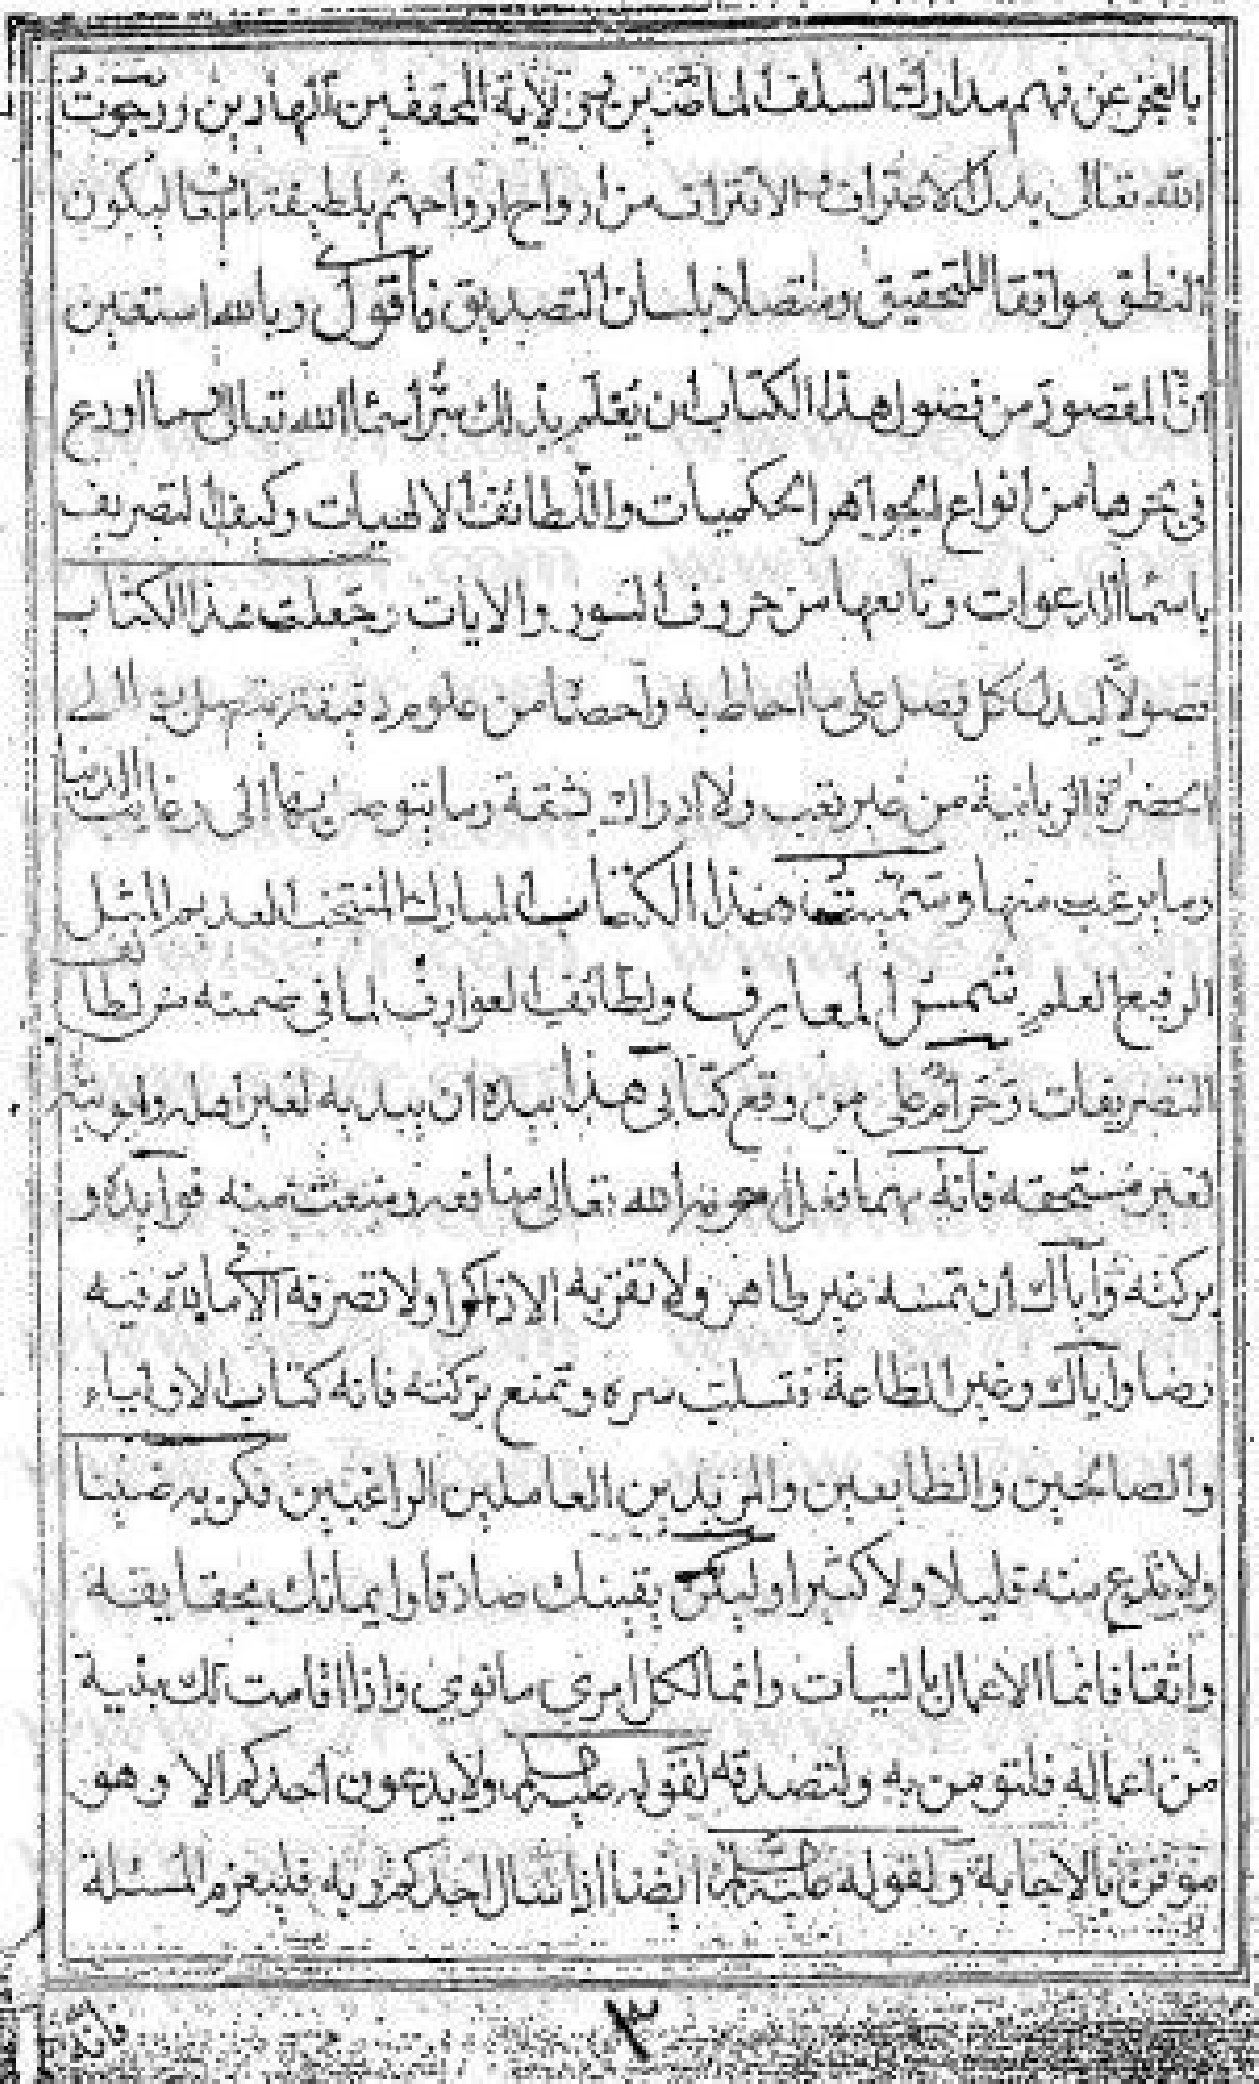 بالعجز عن فهم مدارك السلف الماضين من ولاية المحققين الهادين ورجوت
الله تعالى بذلك الاعتراف الاغتراف من ارواح ارواحهم بلطيفة ليكون
النطق موافقا للتحقيق ومتصلا بلسان التصديق فأقول وبالله استعين
ان المقصود من فصول هذا الكتاب ان يعلم بذلك سر اسما الله تعالى وما اودع
في بحرها من انواع الجواهر الحكميات واللطائف الالهيات وكيف التصريف
باسما الدعوات وتابعها من حروف السور والايات وجعلت هذا الكتاب
فصولاً ليدل كل فصل على ما احاط به واحصا من علوم دقيقة يتوصل بها الى
الحضرة الربانية من غير تعب ولا ادراك مشقة وما يتوصل بها الى رغايب الدنيا
وما يرغب منها وسميت هذا الكتاب المبارك المنتخب العديم المثل
الرفيع العلم شمس المعارف ولطائف العوارف لما في ضمنه من لطائف
التصريفات وحرام على من وقع كتابي هذا بيده ان يبديه لغير اهله ولا يبوح به
لغير مستحقه فانه مهما فعل احرمه الله تعالى منافعه ومنعت منه فوايده و
بركته واياك ان تمسه غير طاهر ولا تقربه الا ذاكرا ولا تصرفه الا ما لله فيه
رضا واياك وغير الطاعة فتسلب سره وتمنع بركته فانه كتاب الاولياء
والصالحين والطايعين والمريدين العاملين الراغبين فكن به ضنينا
ولا تدع منه قليلا ولا كثيرا وليكن يقينك صادقا وايمانك بحقايقه
واثقا فانما الاعمال بالنيات وانما لكل امرئ ما نوى واذا اقامت لك بنية
من اعماله فلتومن به ولتصدقه لقوله صلى الله عليه وسلم ولا يدعون احدكم الا وهو
موقن بالاجابة ولقوله صلى الله عليه وسلم ايضا اذا سال احدكم ربه فليعزم المسئلة
فانه
٣